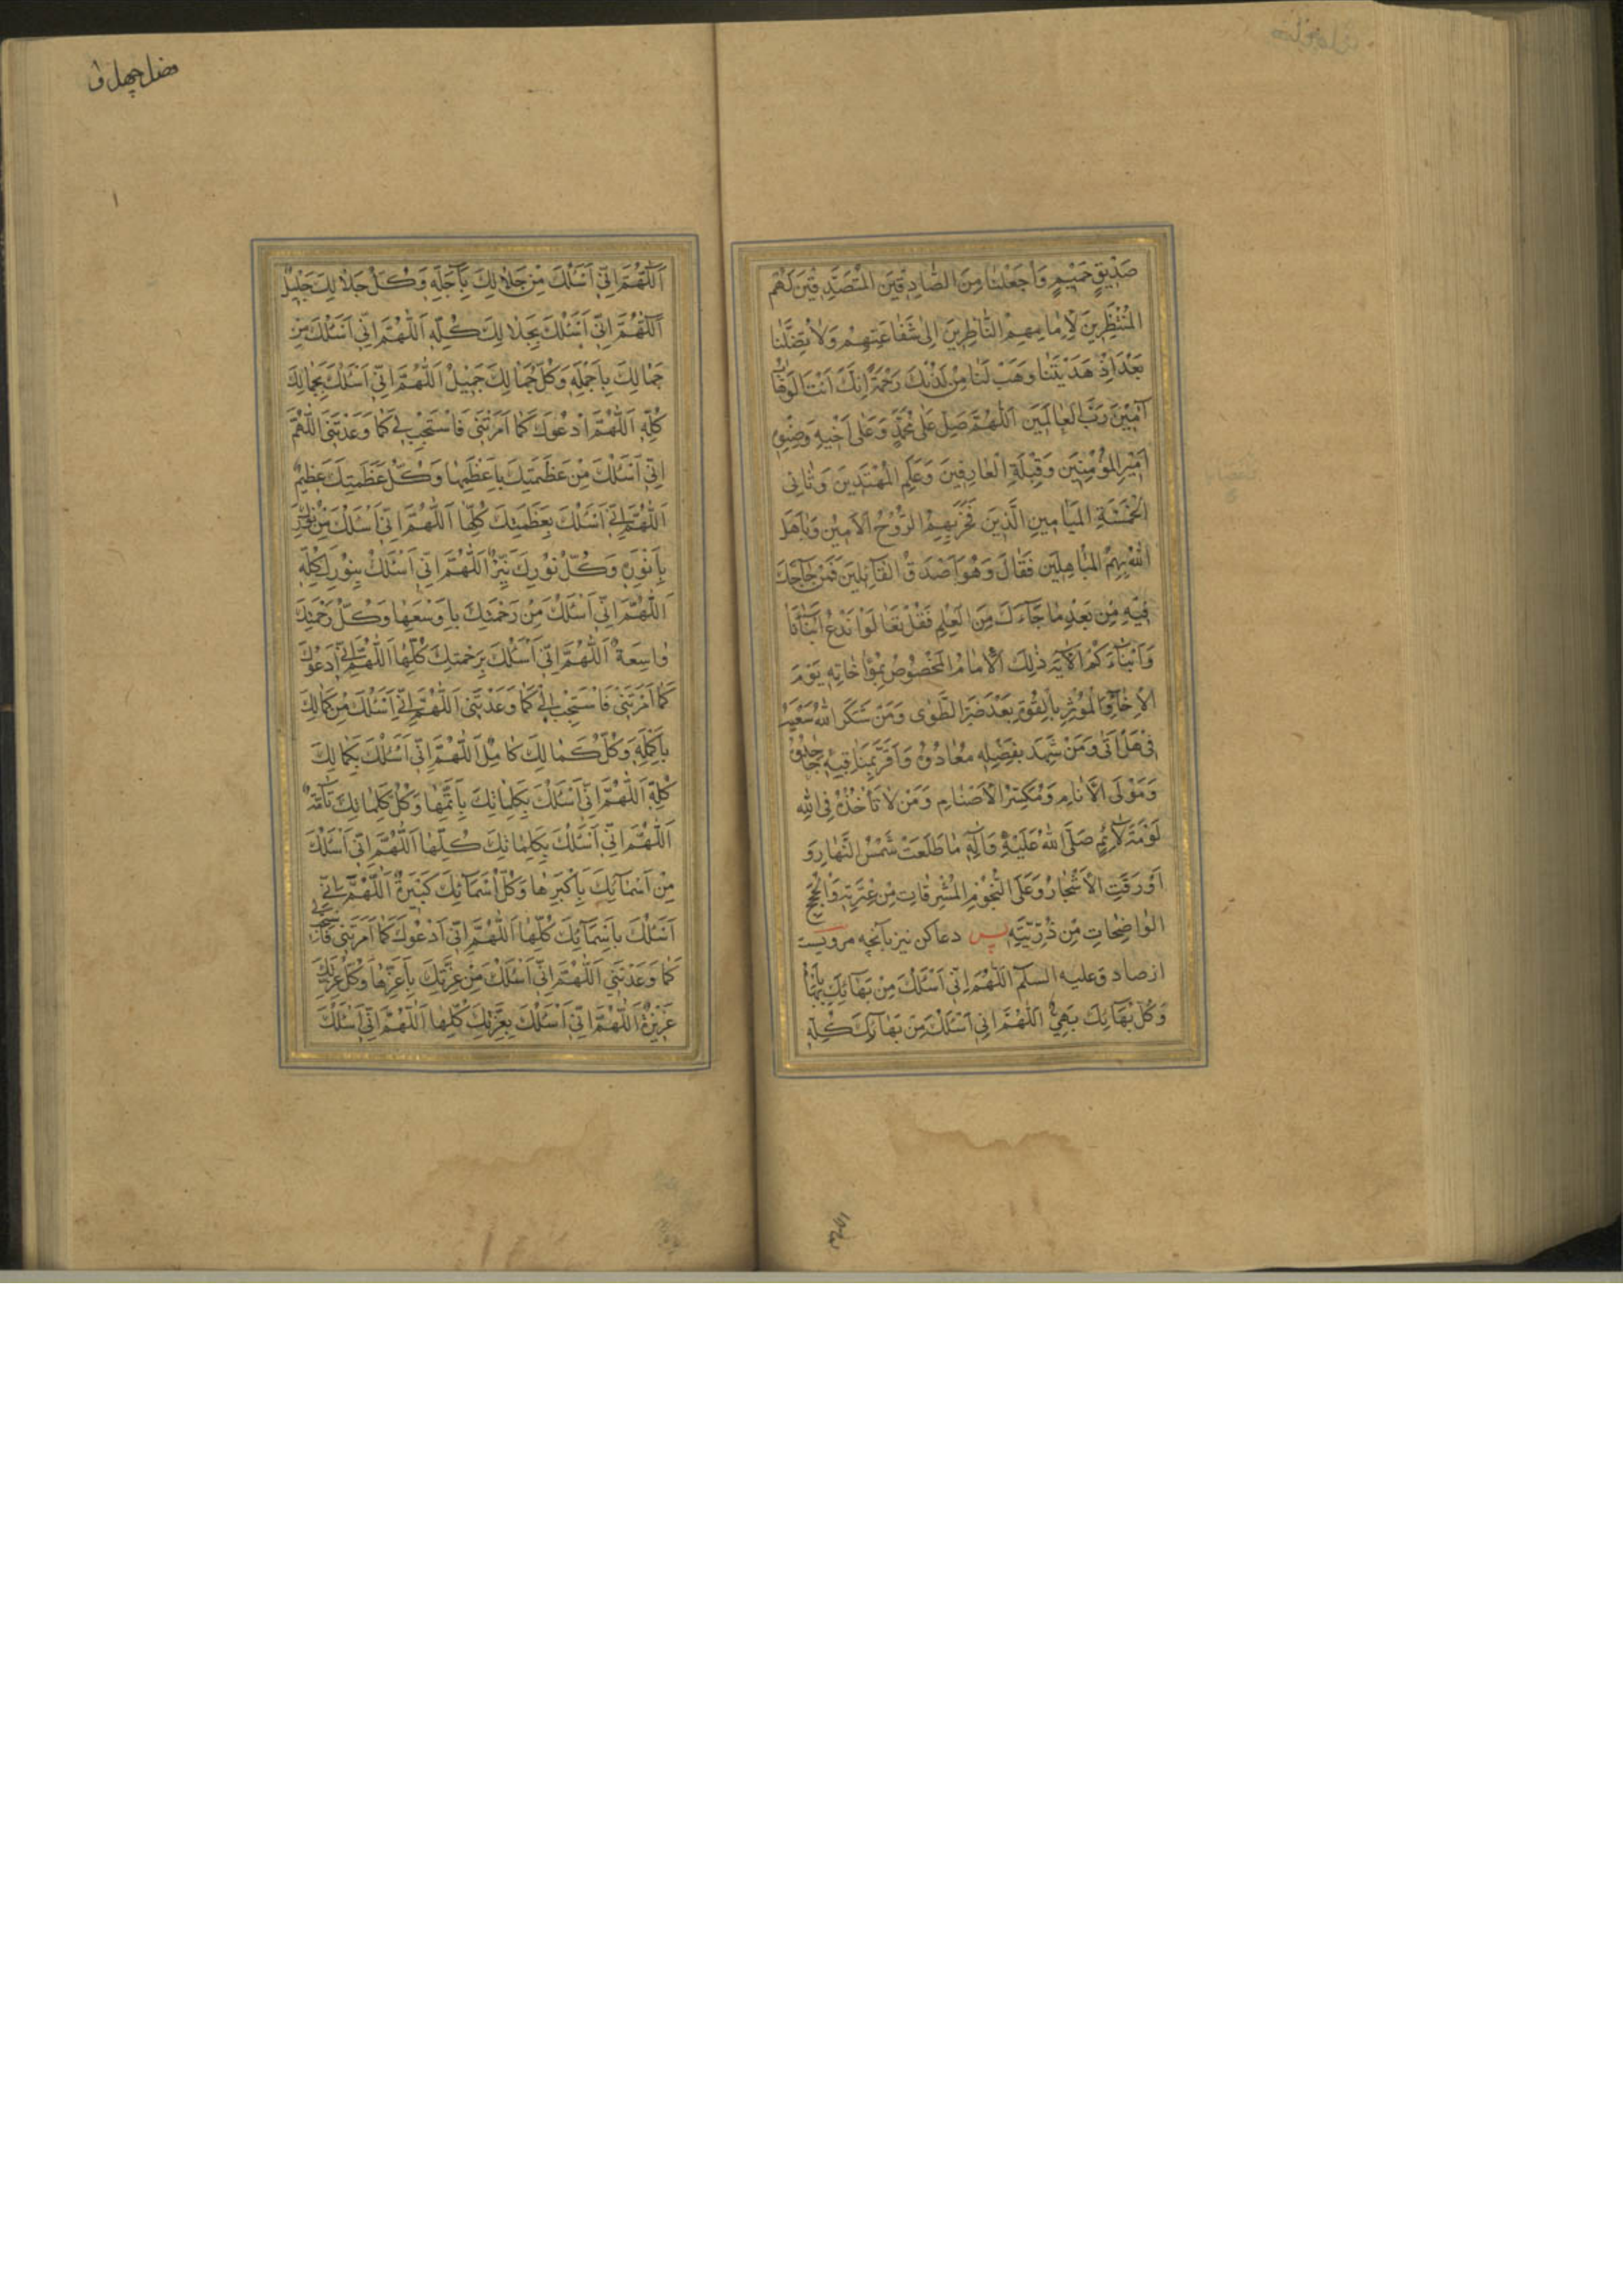 صَدِيقٍ حَمِيمٍ وَاجْعَلْنَا مِنَ الصَّادِقِينَ الْمُتَصَدِّقِينَ لَهُمْ
الْمُنْتَظِرِينَ لِإِمَامِهِمُ النَّاظِرِينَ إِلَى شَفَاعَتِهِمْ وَلَا تُضِلَّنَا
بَعْدَ إِذْ هَدَيْتَنَا وَهَبْ لَنَا مِنْ لَدُنْكَ رَحْمَةً إِنَّكَ أَنْتَ الْوَهَّابُ
آمِينَ رَبَّ الْعَالَمِينَ اَللّٰهُمَّ صَلِّ عَلَى مُحَمَّدٍ وَعَلَى أَخِيهِ وَصِنْوِهِ
أَمِيرِ الْمُؤْمِنِينَ وَقِبْلَةِ الْعَارِفِينَ وَعَلَمِ الْمُهْتَدِينَ وَثَانِي
الْخَمْسَةِ الْمَيَامِينِ الَّذِينَ فَخَرَ بِهِمُ الرُّوحُ الْأَمِينُ وَبَاهَلَ
اللهُ بِهِمُ الْمُبَاهِلِينَ فَقَالَ وَهُوَ أَصْدَقُ الْقَائِلِينَ فَمَنْ حَاجَّكَ
فِيهِ مِنْ بَعْدِ مَا جَاءَكَ مِنَ الْعِلْمِ فَقُلْ تَعَالَوْا نَدْعُ أَبْنَاءَنَا
وَأَبْنَاءَكُمْ الْآيَة ذٰلِكَ الْإِمَامُ الْمَخْصُوصُ بِمُؤَاخَاتِهِ يَوْمَ
الْإِخَاءِ وَالْمُؤْثِرُ بِالْقُوتِ بَعْدَ ضُرِّ الطَّوَى وَمَنْ شَكَرَ اللهُ سَعْيَهُ
فِي هَلْ أَتَى وَمَنْ شَهِدَ بِفَضْلِهِ مُعَادُوهُ وَأَقَرَّ بِمَنَاقِبِهِ جَاحِدُوهُ
وَمَوْلَى الْأَنَامِ وَمُكَسِّرُ الْأَصْنَامِ وَمَنْ لَا تَأْخُذُهُ فِي اللهِ
لَوْمَةُ لَائِمٍ صَلَّى اللهُ عَلَيْهِ وَآلِهِ مَا طَلَعَتْ شَمْسُ النَّهَارِ وَ
أَوْرَقَتِ الْأَشْجَارُ وَعَلَى النُّجُومِ الْمُشْرِقَاتِ مِنْ عِتْرَتِهِ وَالْحُجَجِ
الْوَاضِحَاتِ مِنْ ذُرِّيَّتِهِ پس دعا کن نیز بآنچه مرویست
از صادق علیه السلم اَللّٰهُمَّ إِنِّي أَسْئَلُكَ مِنْ بَهَائِكَ بِأَبْهَاهُ
وَكُلُّ بَهَائِكَ بَهِيٌّ اَللّٰهُمَّ إِنِّي أَسْئَلُكَ مِنْ بَهَائِكَ كُلِّهِ
اَللّٰهُمَّ إِنِّي أَسْئَلُكَ مِنْ جَلَالِكَ بِأَجَلِّهِ وَكُلُّ جَلَالِكَ جَلِيلٌ
اَللّٰهُمَّ إِنِّي أَسْئَلُكَ بِجَلَالِكَ كُلِّهِ اَللّٰهُمَّ إِنِّي أَسْئَلُكَ مِنْ
جَمَالِكَ بِأَجْمَلِهِ وَكُلُّ جَمَالِكَ جَمِيلٌ اَللّٰهُمَّ إِنِّي أَسْئَلُكَ بِجَمَالِكَ
كُلِّهِ اَللّٰهُمَّ أَدْعُوكَ كَمَا أَمَرْتَنِي فَاسْتَجِبْ لِي كَمَا وَعَدْتَنِي اَللّٰهُمَّ
إِنِّي أَسْئَلُكَ مِنْ عَظَمَتِكَ بِأَعْظَمِهَا وَكُلُّ عَظَمَتِكَ عَظِيمٌ
اَللّٰهُمَّ إِنِّي أَسْئَلُكَ بِعَظَمَتِكَ كُلِّهَا اَللّٰهُمَّ إِنِّي أَسْئَلُكَ مِنْ نُورِكَ
بِأَنْوَرِهِ وَكُلُّ نُورِكَ نَيِّرٌ اَللّٰهُمَّ إِنِّي أَسْئَلُكَ بِنُورِكَ كُلِّهِ
اَللّٰهُمَّ إِنِّي أَسْئَلُكَ مِنْ رَحْمَتِكَ بِأَوْسَعِهَا وَكُلُّ رَحْمَتِكَ
وَاسِعَةٌ اَللّٰهُمَّ إِنِّي أَسْئَلُكَ بِرَحْمَتِكَ كُلِّهَا اَللّٰهُمَّ إِنِّي أَدْعُوكَ
كَمَا أَمَرْتَنِي فَاسْتَجِبْ لِي كَمَا وَعَدْتَنِي اَللّٰهُمَّ إِنِّي أَسْئَلُكَ مِنْ كَمَالِكَ
بِأَكْمَلِهِ وَكُلُّ كَمَالِكَ كَامِلٌ اَللّٰهُمَّ إِنِّي أَسْئَلُكَ بِكَمَالِكَ
كُلِّهِ اَللّٰهُمَّ إِنِّي أَسْئَلُكَ بِكَلِمَاتِكَ بِأَتَمِّهَا وَكُلُّ كَلِمَاتِكَ تَامَّةٌ
اَللّٰهُمَّ إِنِّي أَسْئَلُكَ بِكَلِمَاتِكَ كُلِّهَا اَللّٰهُمَّ إِنِّي أَسْئَلُكَ
مِنْ أَسْمَائِكَ بِأَكْبَرِهَا وَكُلُّ أَسْمَائِكَ كَبِيرَةٌ اَللّٰهُمَّ إِنِّي
أَسْئَلُكَ بِأَسْمَائِكَ كُلِّهَا اَللّٰهُمَّ إِنِّي أَدْعُوكَ كَمَا أَمَرْتَنِي فَاسْتَجِبْ لِي
كَمَا وَعَدْتَنِي اَللّٰهُمَّ إِنِّي أَسْئَلُكَ مِنْ عِزَّتِكَ بِأَعَزِّهَا وَكُلُّ عِزَّتِكَ
عَزِيزَةٌ اَللّٰهُمَّ إِنِّي أَسْئَلُكَ بِعِزَّتِكَ كُلِّهَا اَللّٰهُمَّ إِنِّي أَسْئَلُكَ